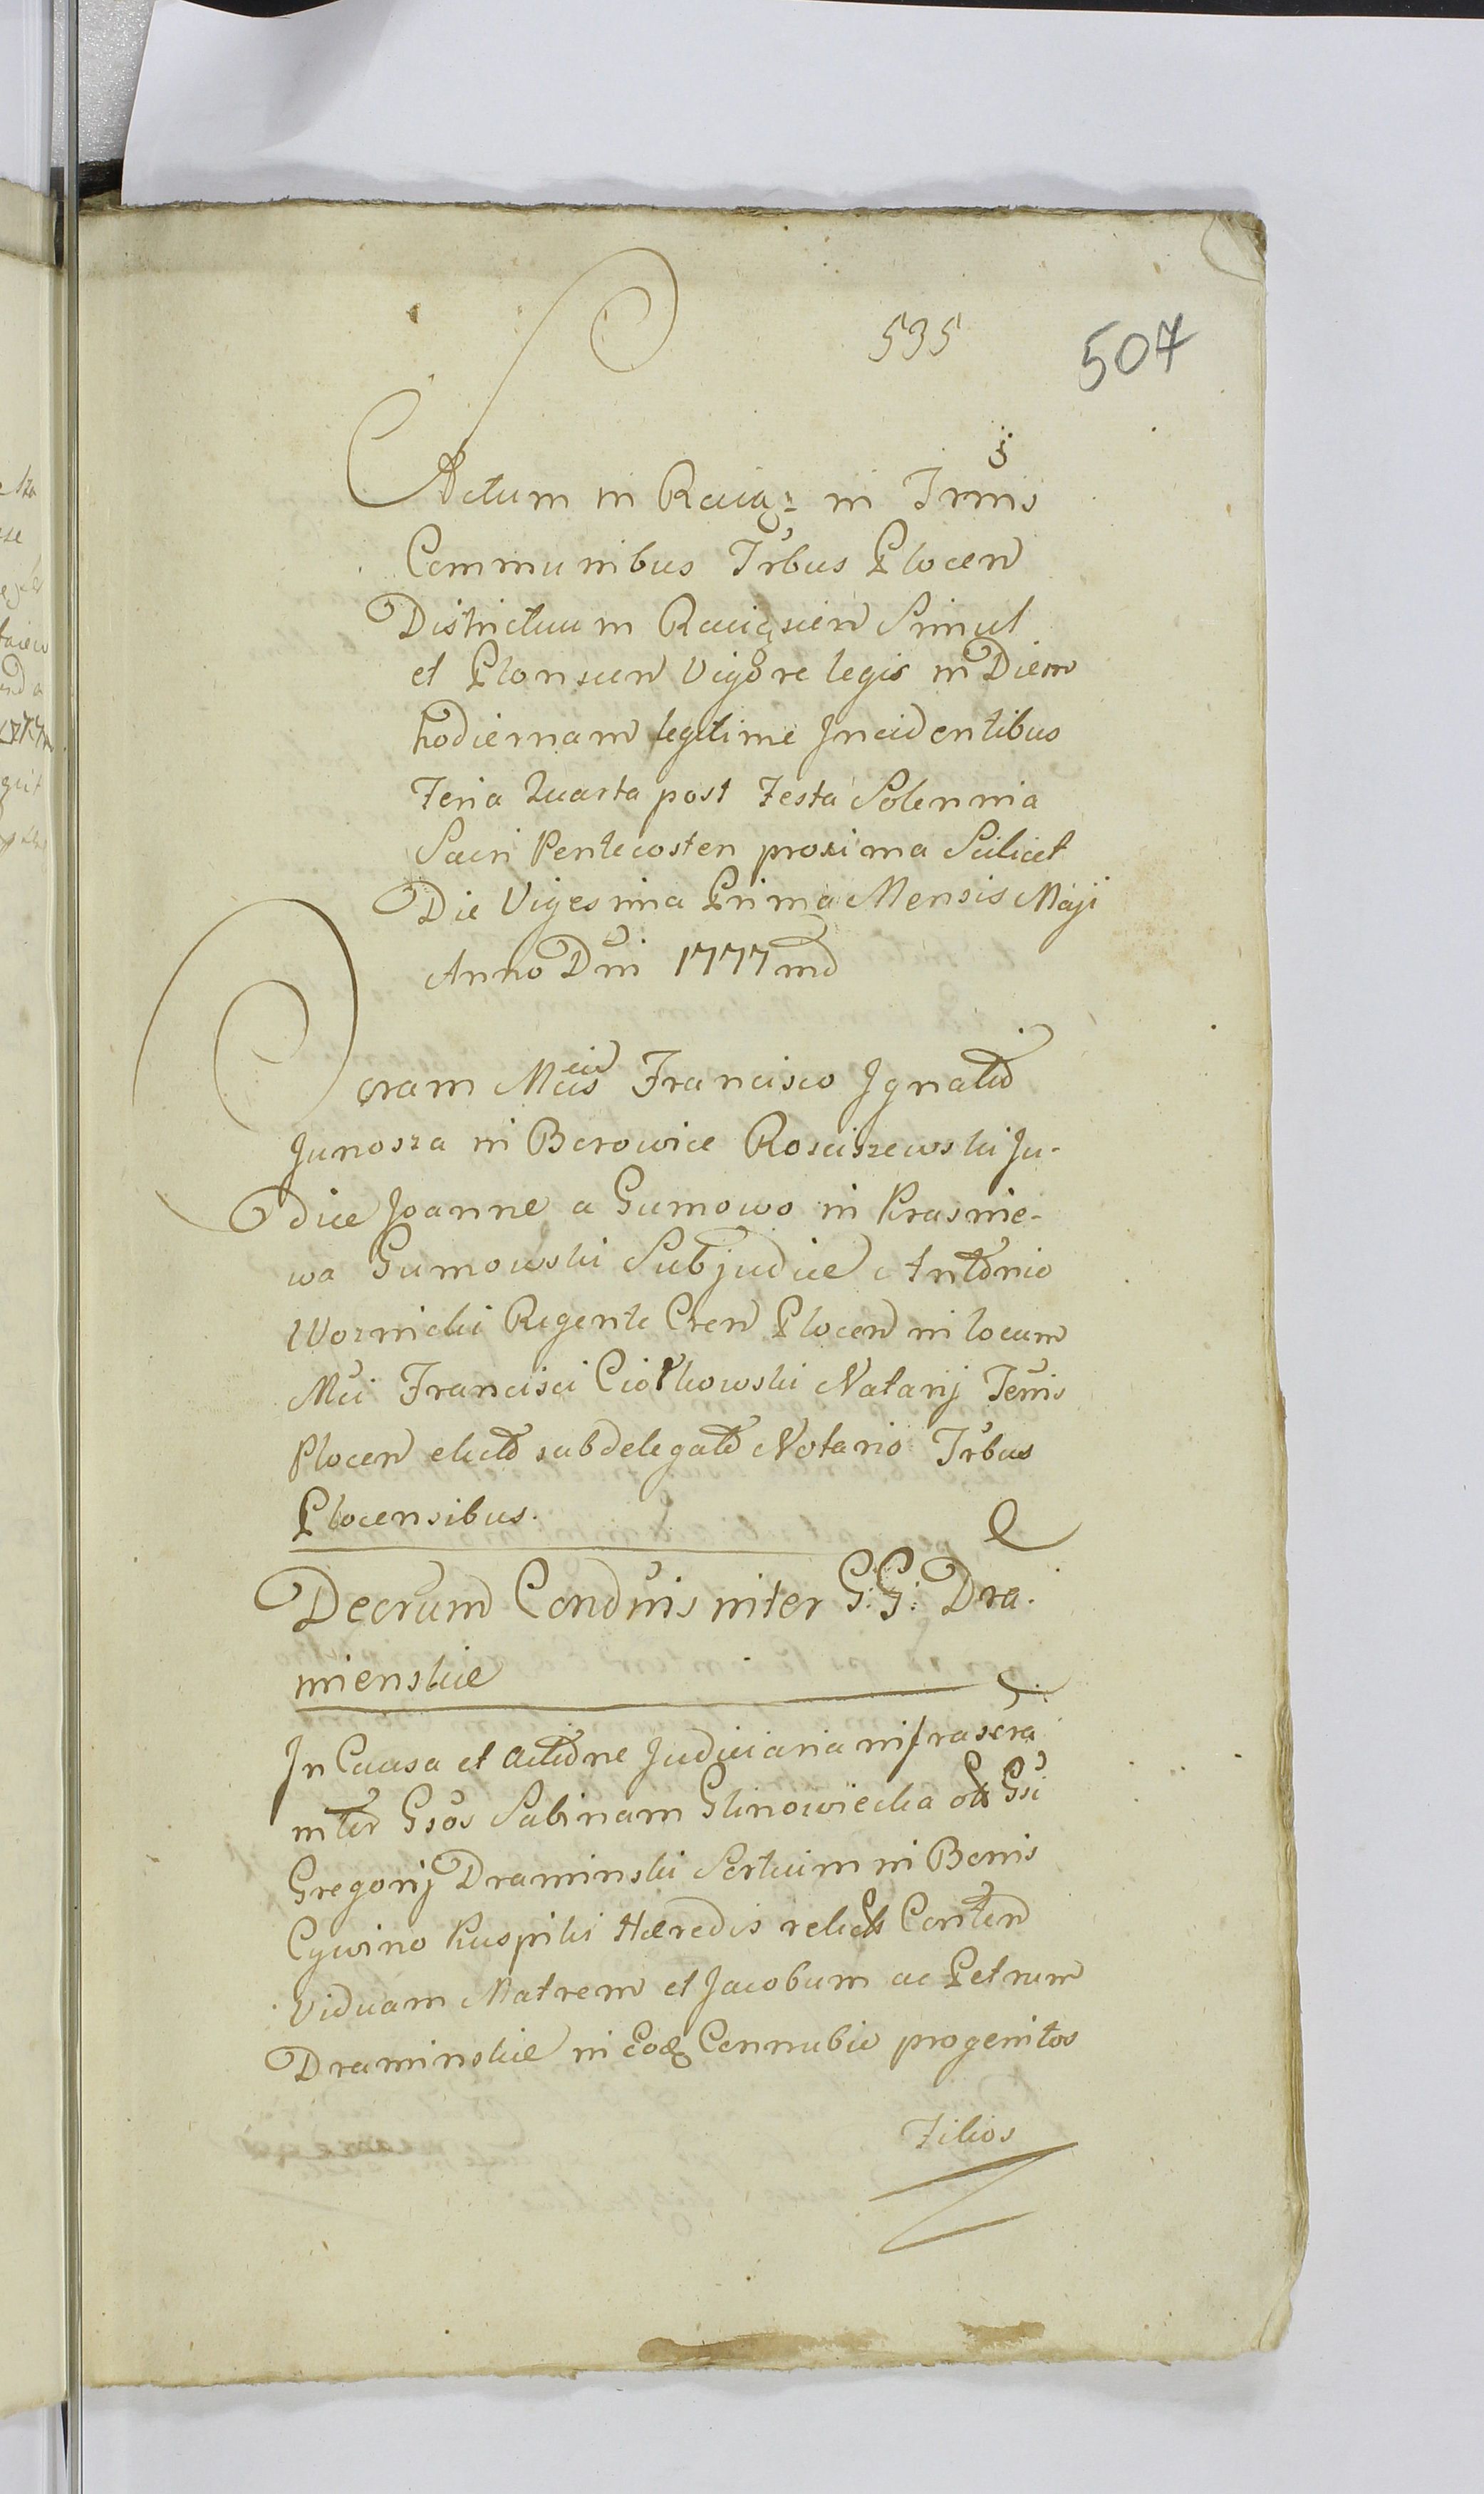 535
507
Actum in Raciąz in Trmis
Communibus Trbus Plocen
Districtuum Raciąscien Simul
et Plonscen Vigore legis in Diem
hodiernam legitime Incidentibus
Feria Quarta post Festa Solennia
Sacri Pentecosten proxima Scilicet
Die Vigesima Prima Mensis Maji
Anno Dni 1777md
Coram Mcis Francisco Ignatio
Junosza in Borowice Rosciszewski Ju-
dice Joanne a Gumowo in Krasnie-
wa Gumowski Subjudice Antonio
Woznicki Regente Cren Plocen in locum
Mci Francisci Ciołkowski Notarij Terris
Plocen electo subdelegato Notario Trbus
Plocensibus.
Decrum Condnis inter G: G: Dra-
mienskie
In Causa et Actione Judiciaria infrascra
inter Gsos Sabinam Glinowiecka olt Gsi
Gregorij Draminski Sortium in Bonis
Cywino Kuspiki Hæredis relictt Conten
Viduam Matrem et Jacobum ac Petrum
Draminskie in Eoq Connubio progenitos
Filios